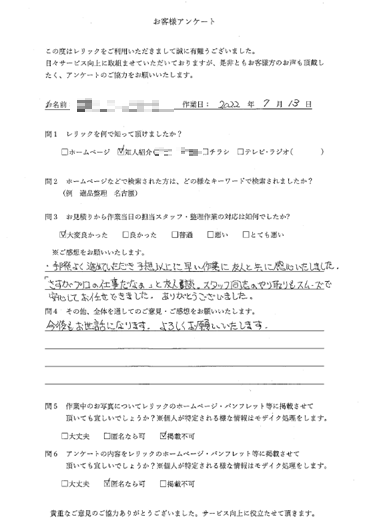 お客様アンケート
この度はレリックをご利用いただきまして誠に有難うございました。
日々サービス向上に取組ませていただいておりますが、是非ともお客様方のお声も頂戴し
たく、アンケートのご協力をお願いいたします。
お名前 作業日: 2022 年 7 月 13 日
問1 レリックを何で知って頂けましたか?
□ホームページ ☑知人紹介 □チラシ □テレビ・ラジオ( )
問2 ホームページなどで検索された方は、どの様なキーワードで検索されましたか?
(例 遺品整理 名古屋)
問3 お見積りから作業当日の担当スタッフ・整理作業の対応は如何でしたか?
☑大変良かった □良かった □普通 □悪い □とても悪い
※ご感想をお願いいたします。
・手際よく進めていただき予想以上に早い作業に友人と共に感心いたしました。
「さすがプロの仕事だなぁ」と友人談。スタッフ同志のやり取りもスムーズで
安心してお任せできました。ありがとうございました。
問4 その他、全体を通してのご意見・ご感想をお願いいたします。
今後もお世話になります。よろしくお願いいたします。
問5 作業中のお写真についてレリックのホームページ・パンフレット等に掲載させて
頂いても宜しいでしょうか?※個人が特定される様な情報はモザイク処理をします。
□大丈夫 □匿名なら可 ☑掲載不可
問6 アンケートの内容をレリックのホームページ・パンフレット等に掲載させて
頂いても宜しいでしょうか?※個人が特定される様な情報はモザイク処理をします。
□大丈夫 ☑匿名なら可 □掲載不可
貴重なご意見のご協力ありがとうございました。サービス向上に役立たせて頂きます。